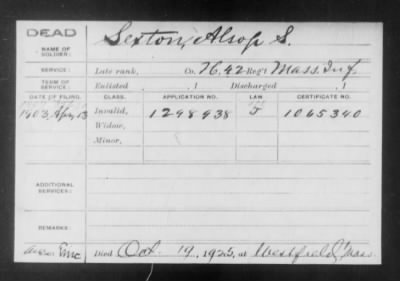 DEAD
NAME OF SOLDIER:
Sexton, Alsop S.
SERVICE:
Late rank, Co. H. 42 Reg't Mass. Inf.
TERM OF SERVICE:
Enlisted , 1 Discharged , 1
DATE OF FILING. CLASS. APPLICATION NO. LAW CERTIFICATE NO.
1903, Apr. 13 Invalid, 1298938 1065340
Widow,
Minor,
ADDITIONAL SERVICES:
REMARKS:
Died Oct. 19, 1925, at Westfield, Mass.